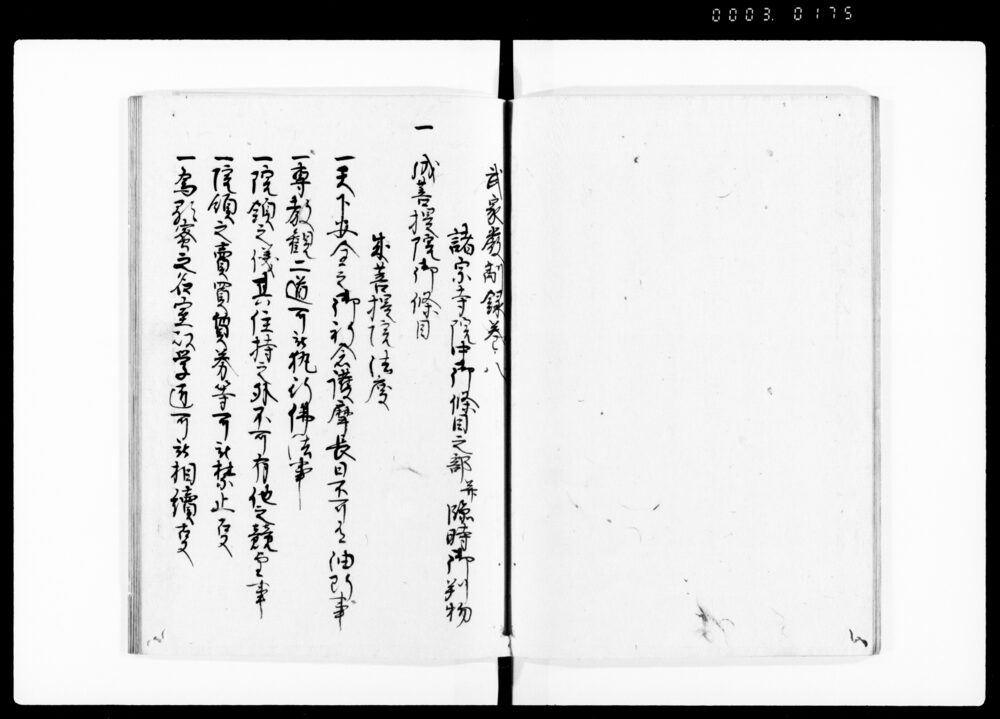 0003. 0175
武家厳制録巻八
諸宗寺院中御條目之部并臨時御判物
一 成菩提院御條目
成菩提院法度
一天下安全之御祈念護摩長日不可有油断事
一専教観二道可被執行佛法事
一院領之儀其住持之外不可有他之競望事
一院領之賣買質券等可被禁止事
一為顕密之名室以学道可被相續事